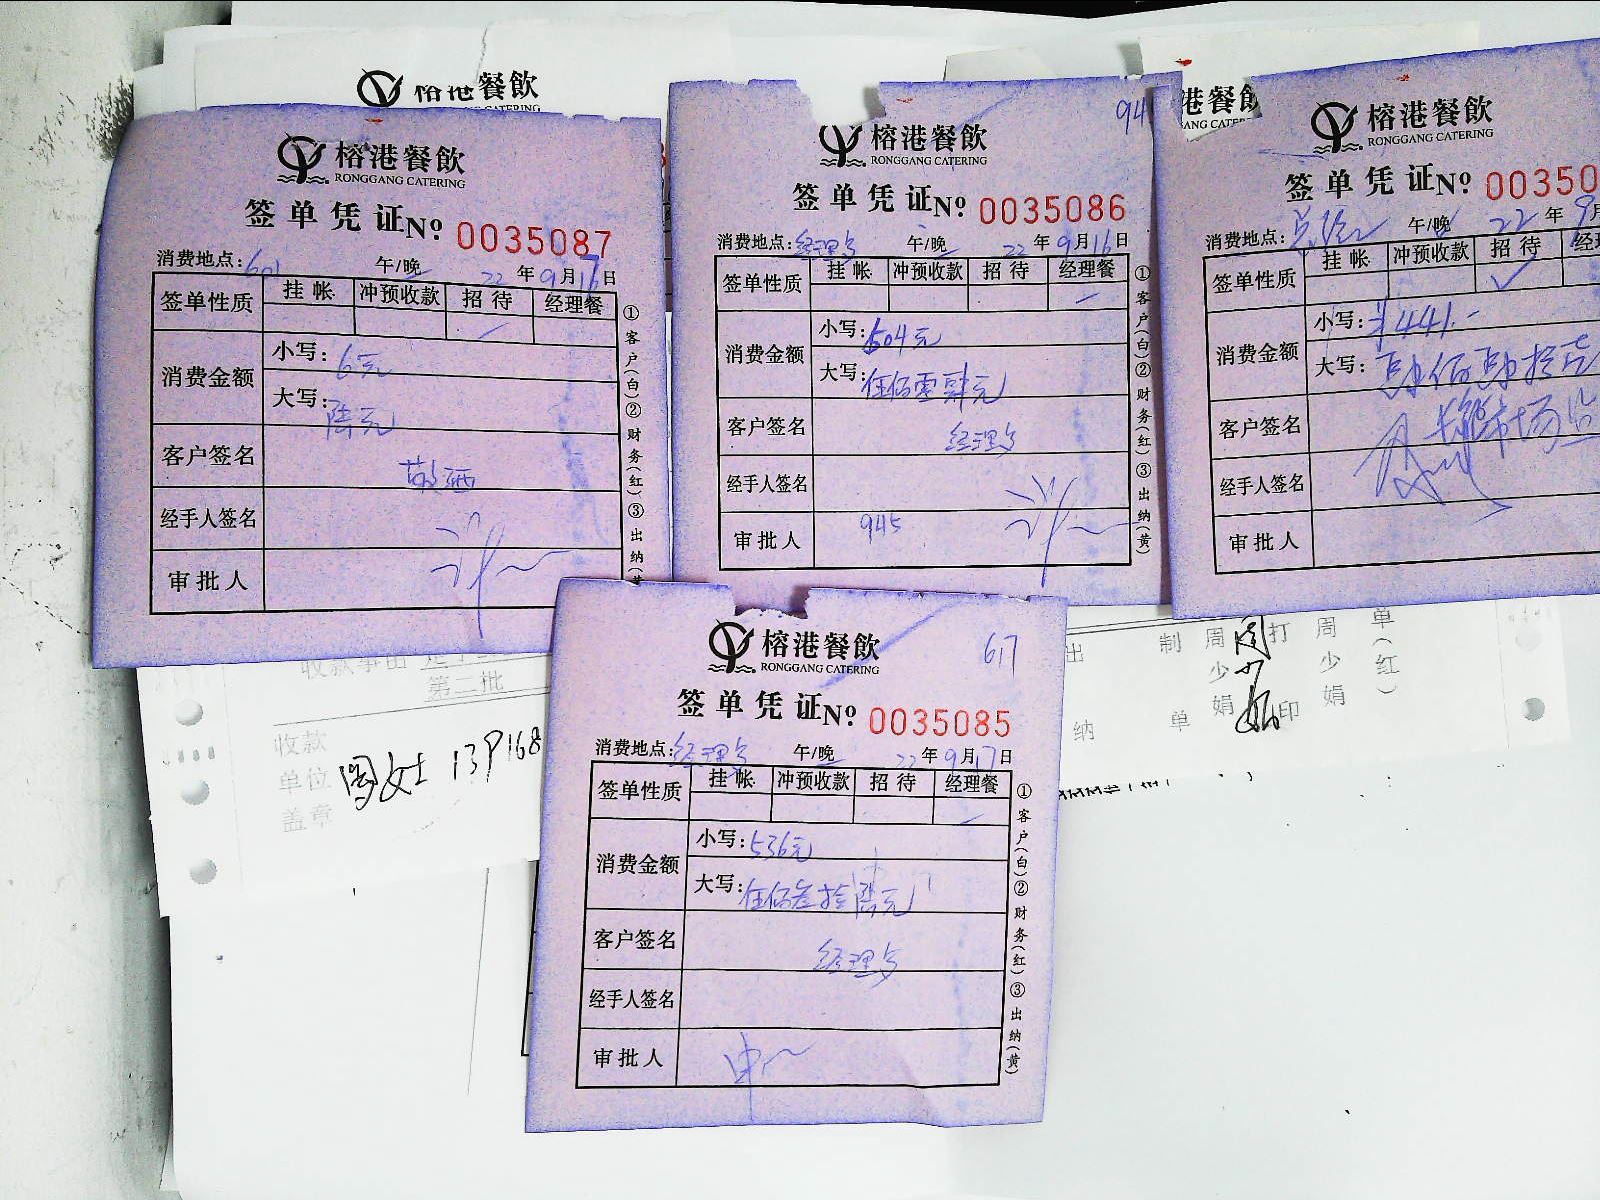 餐飲
CATERING
榕港餐飲
RONGGANG CATERING
签单凭证№ 0035087
消费地点:601 午/晚 22年9月17日
签单性质 挂帐 冲预收款 招待 经理餐
消费金额 小写:6元
大写:陆元
客户签名
经手人签名
审批人
①客户(白)②财务(红)③出纳(黄
94
榕港餐飲
RONGGANG CATERING
签单凭证№ 0035086
消费地点: 午/晚 22年9月16日
签单性质 挂帐 冲预收款 招待 经理餐
消费金额 小写:504元
大写:伍佰零肆元
客户签名
经手人签名
审批人 945
①客户(白)②财务(红)③出纳(黄)
港餐
榕港餐飲
RONGGANG CATERING
签单凭证№ 00350
消费地点: 午/晚 22年9月
签单性质 挂帐 冲预收款 招待 经
消费金额 小写:¥441.-
大写:
客户签名
经手人签名
审批人
617
榕港餐飲
RONGGANG CATERING
签单凭证№ 0035085
消费地点: 午/晚 22年9月17日
签单性质 挂帐 冲预收款 招待 经理餐
消费金额 小写:536元
大写:伍佰叁拾陆元
客户签名
经手人签名
审批人
①客户(白)②财务(红)③出纳(黄)
收款事由
第二批
收款
单位
盖章
女士
出纳
制单 周少娟
打印 周少娟
单(红)